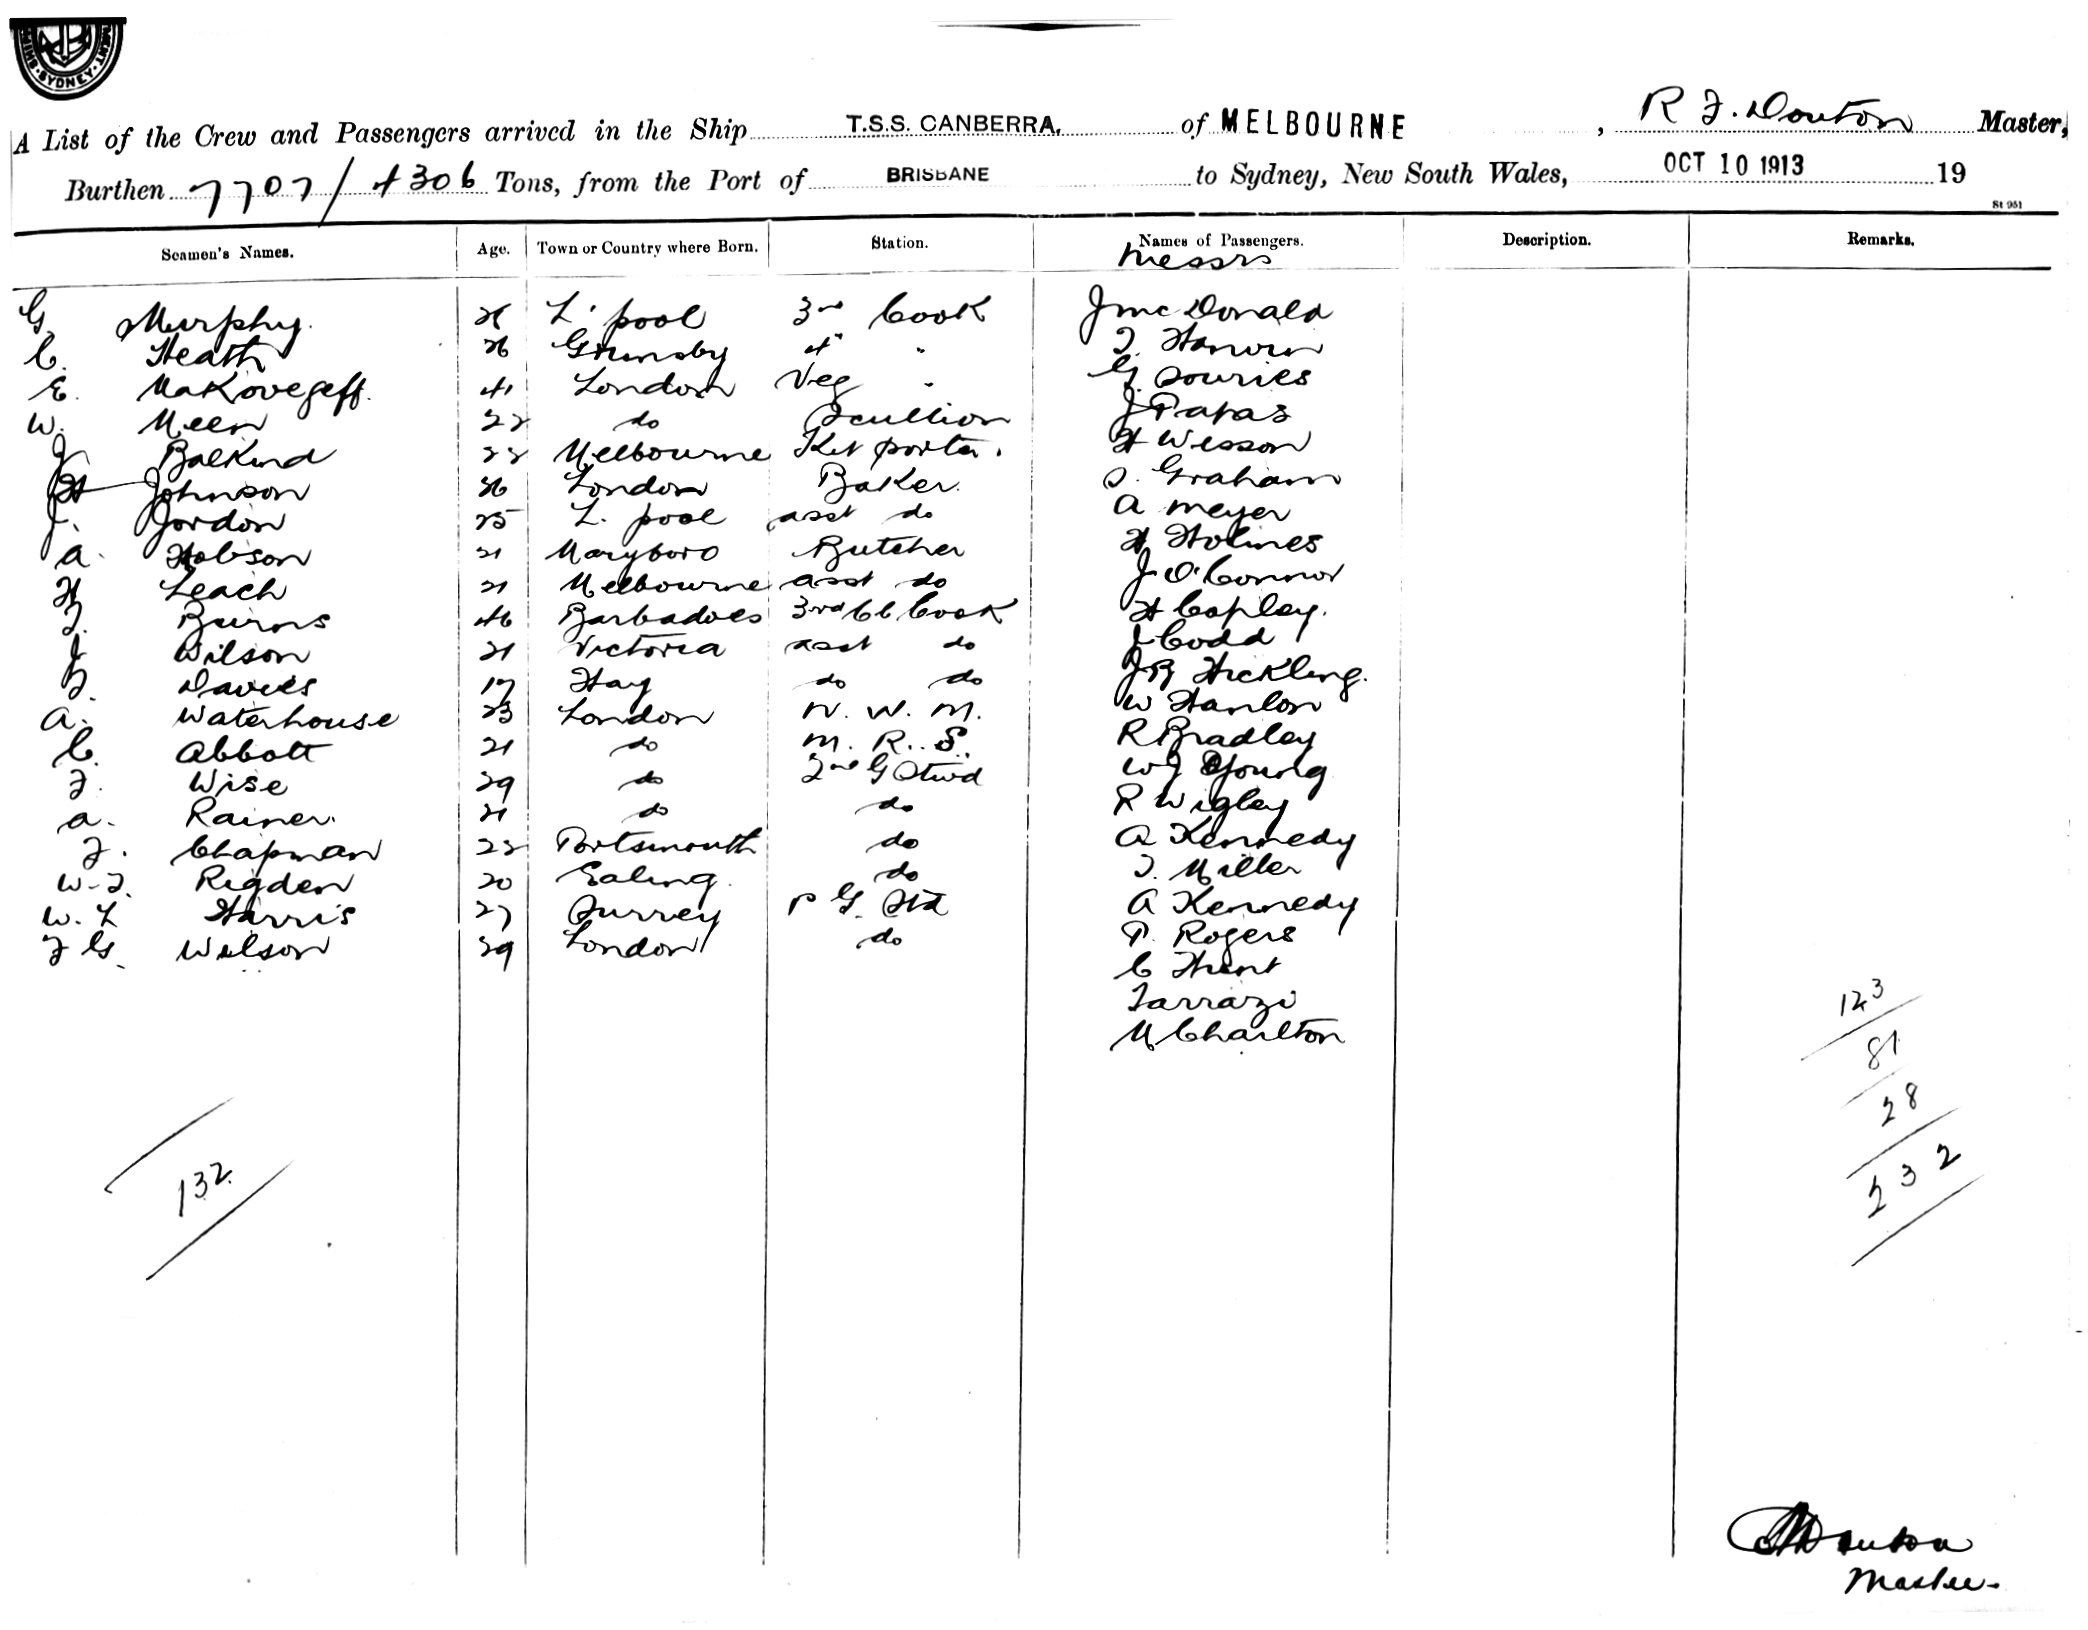 SYDNEY
A List of the Crew and Passengers arrived in the Ship T.S.S. CANBERRA, of MELBOURNE, R F. Douton Master,
Burthen 7707/4306 Tons, from the Port of BRISBANE to Sydney, New South Wales, OCT 10 1913 19
St 951
Seamen's Names. Age. Town or Country where Born. Station. Names of Passengers. Description. Remarks.
Messrs
G Murphy. 26 L'pool 3rd Cook J McDonald
C. Heath 26 Grimsby 4" "
E. Makovegeff. 41 London Veg " G. Souries
W. Meen 22 do Scullion J Papas
J Balkind 22 Melbourne Kit porter. H Wesson
H Johnson 26 London Baker. S. Graham
J. Jordon 25 L. pool asst do A Meyer
A. Hobson 21 Maryboro Butcher H Holmes
H Leach 21 Melbourne asst do J O'Connor
F. Burns 46 Barbadoes 3rd Cl Cook H Copley.
J Wilson 21 Victoria asst do J Codd
F. Davies 17 Hay do do J B Hickling.
A. Waterhouse 23 London N. W. M. W Hanlon
C. Abbott 21 do M. R. S. R Bradley
F. Wise 29 do 2nd G Stwd W J Young
A. Rainer. 21 do do R Wigley
F. Chapman 22 Portsmouth do A Kennedy
W-F. Rigden 20 Ealing. do T. Miller
W. L Harris 27 Surrey P G. Std A Kennedy
F G. Wilson 29 London do P. Rogers
C Hunt
Tarrazi
M Charlton
123
81
28
232
132.
Douton
Master.